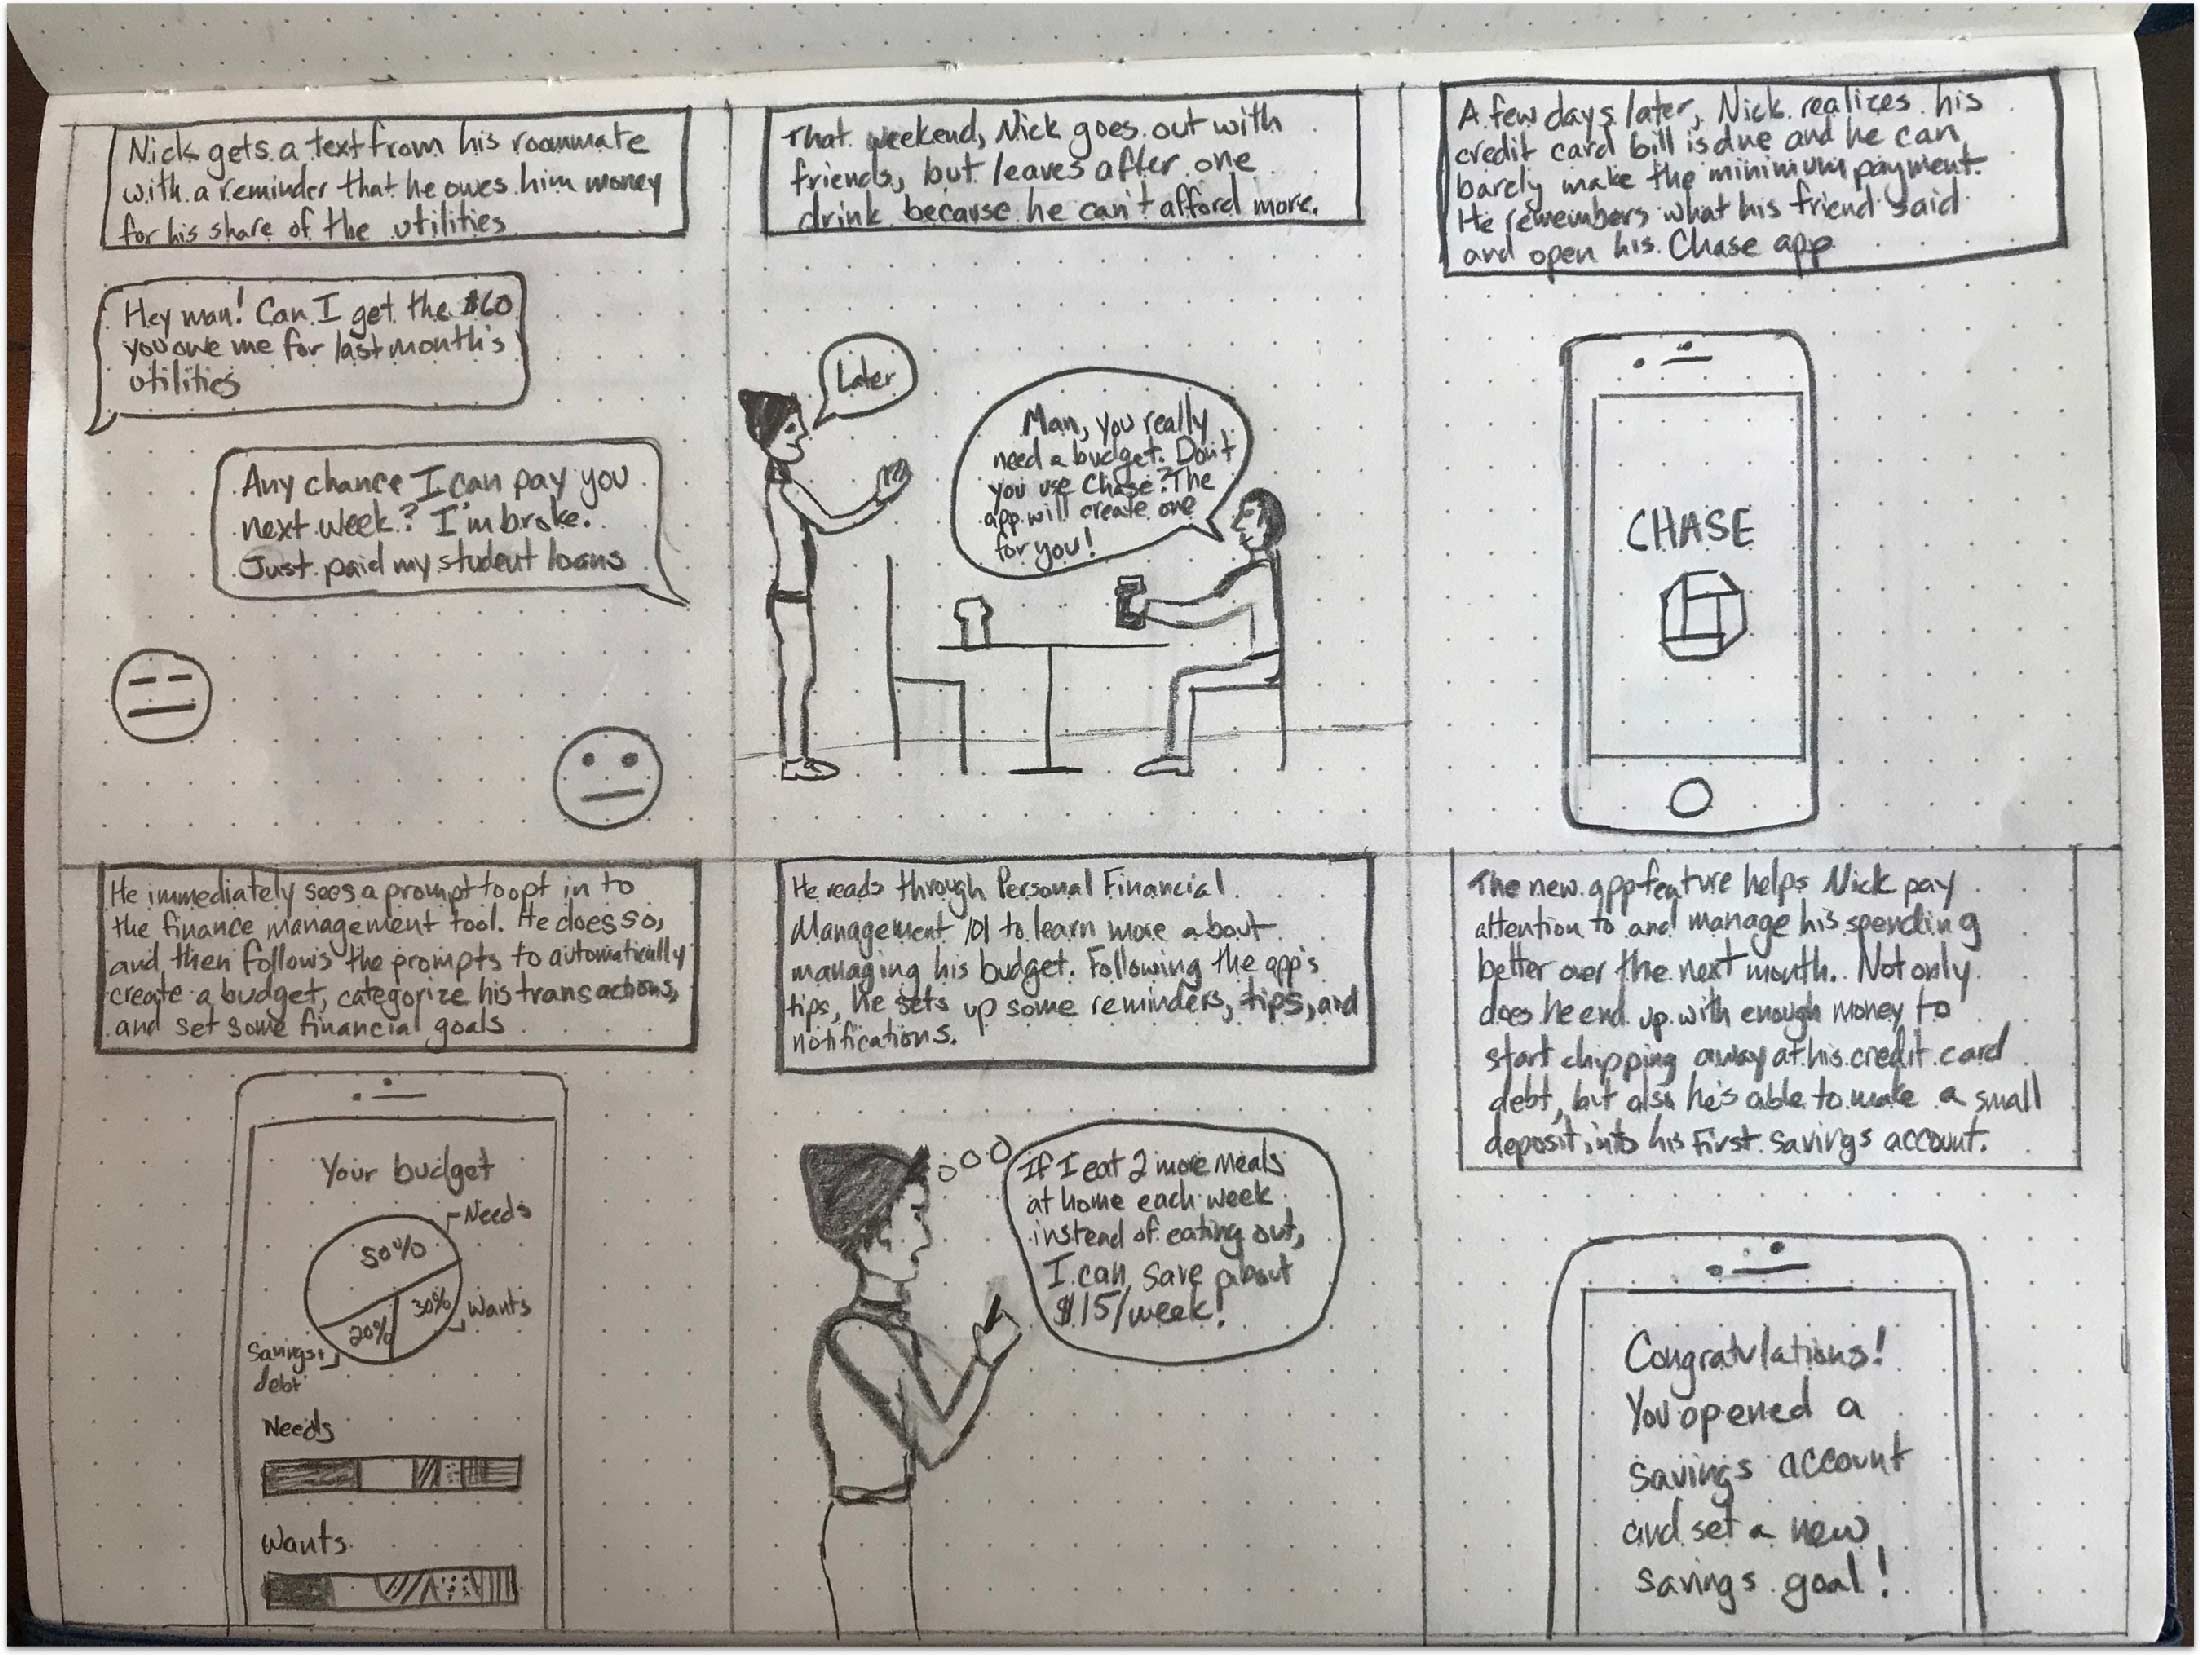 Nick gets a text from his roommate
with a reminder that he owes him money
for his share of the utilities
Hey man! Can I get the $60
you owe me for last month's
utilities
Any chance I can pay you
next week? I'm broke.
Just paid my student loans
That weekend, Nick goes out with
friends, but leaves after one
drink because he can't afford more.
Later
Man, you really
need a budget. Don't
you use Chase? The
app will create one
for you!
A few days later, Nick realizes his
credit card bill is due and he can
barely make the minimum payment.
He remembers what his friend said
and open his Chase app
CHASE
He immediately sees a prompt to opt in to
the finance management tool. He does so,
and then follows the prompts to automatically
create a budget, categorize his transactions,
and set some financial goals
Your budget
Needs
50%
30%
Wants
20%
Savings,
debt
Needs
Wants
He reads through Personal Financial
Management 101 to learn more about
managing his budget. Following the app's
tips, he sets up some reminders, tips, and
notifications.
If I eat 2 more meals
at home each week
instead of eating out,
I can save about
$15/week!
The new app feature helps Nick pay
attention to and manage his spending
better over the next month. Not only
does he end up with enough money to
start chipping away at his credit card
debt, but also he's able to make a small
deposit into his first savings account.
Congratulations!
You opened a
savings account
and set a new
savings goal!